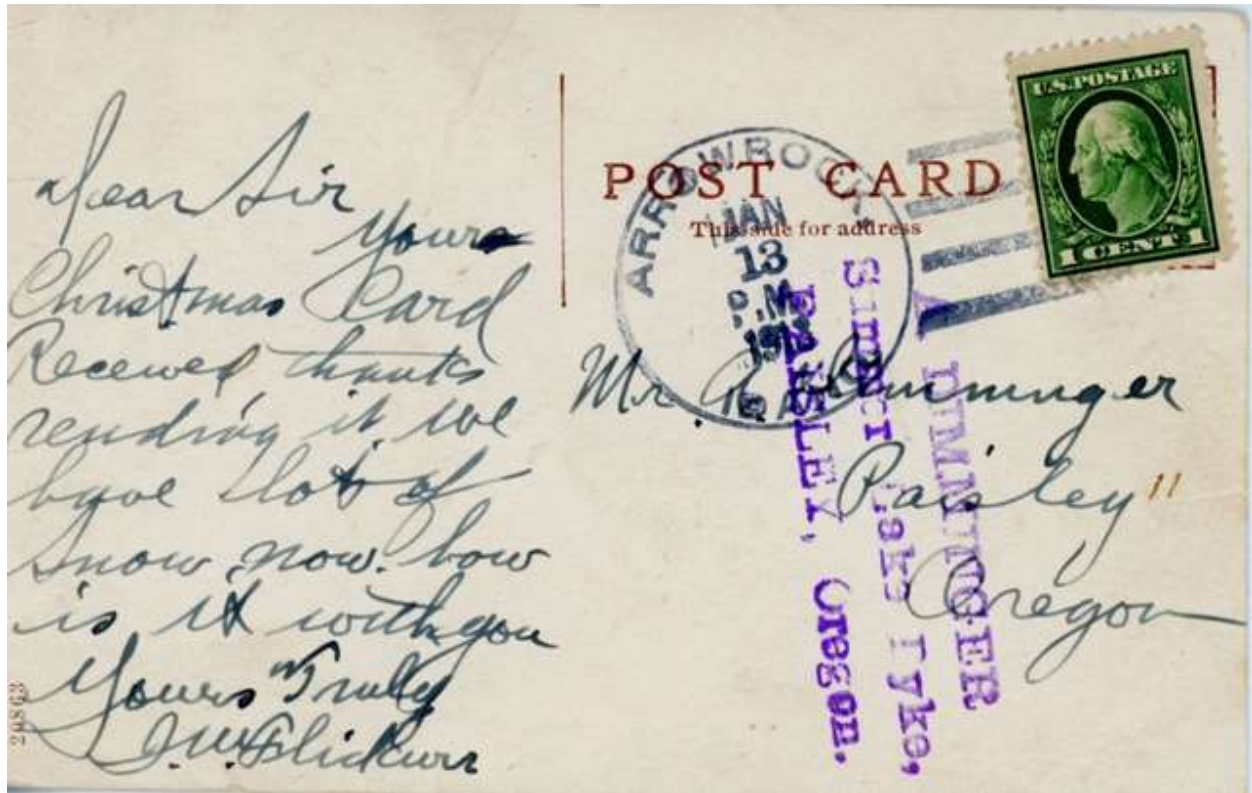 Dear Sir
Yours
Christmas Card
Received thanks
sending it. we
have lots of
snow now. how
is it with you
Yours Truly
20863
POST CARD
This side for address
ARROWROCK,
JAN
13
P.M.
IDAHO
U.S. POSTAGE
1 CENT 1
Mr.
Paisley "
Oregon
A DIMMINGER
Summer Lake Pyke,
PAISLEY, Oregon.